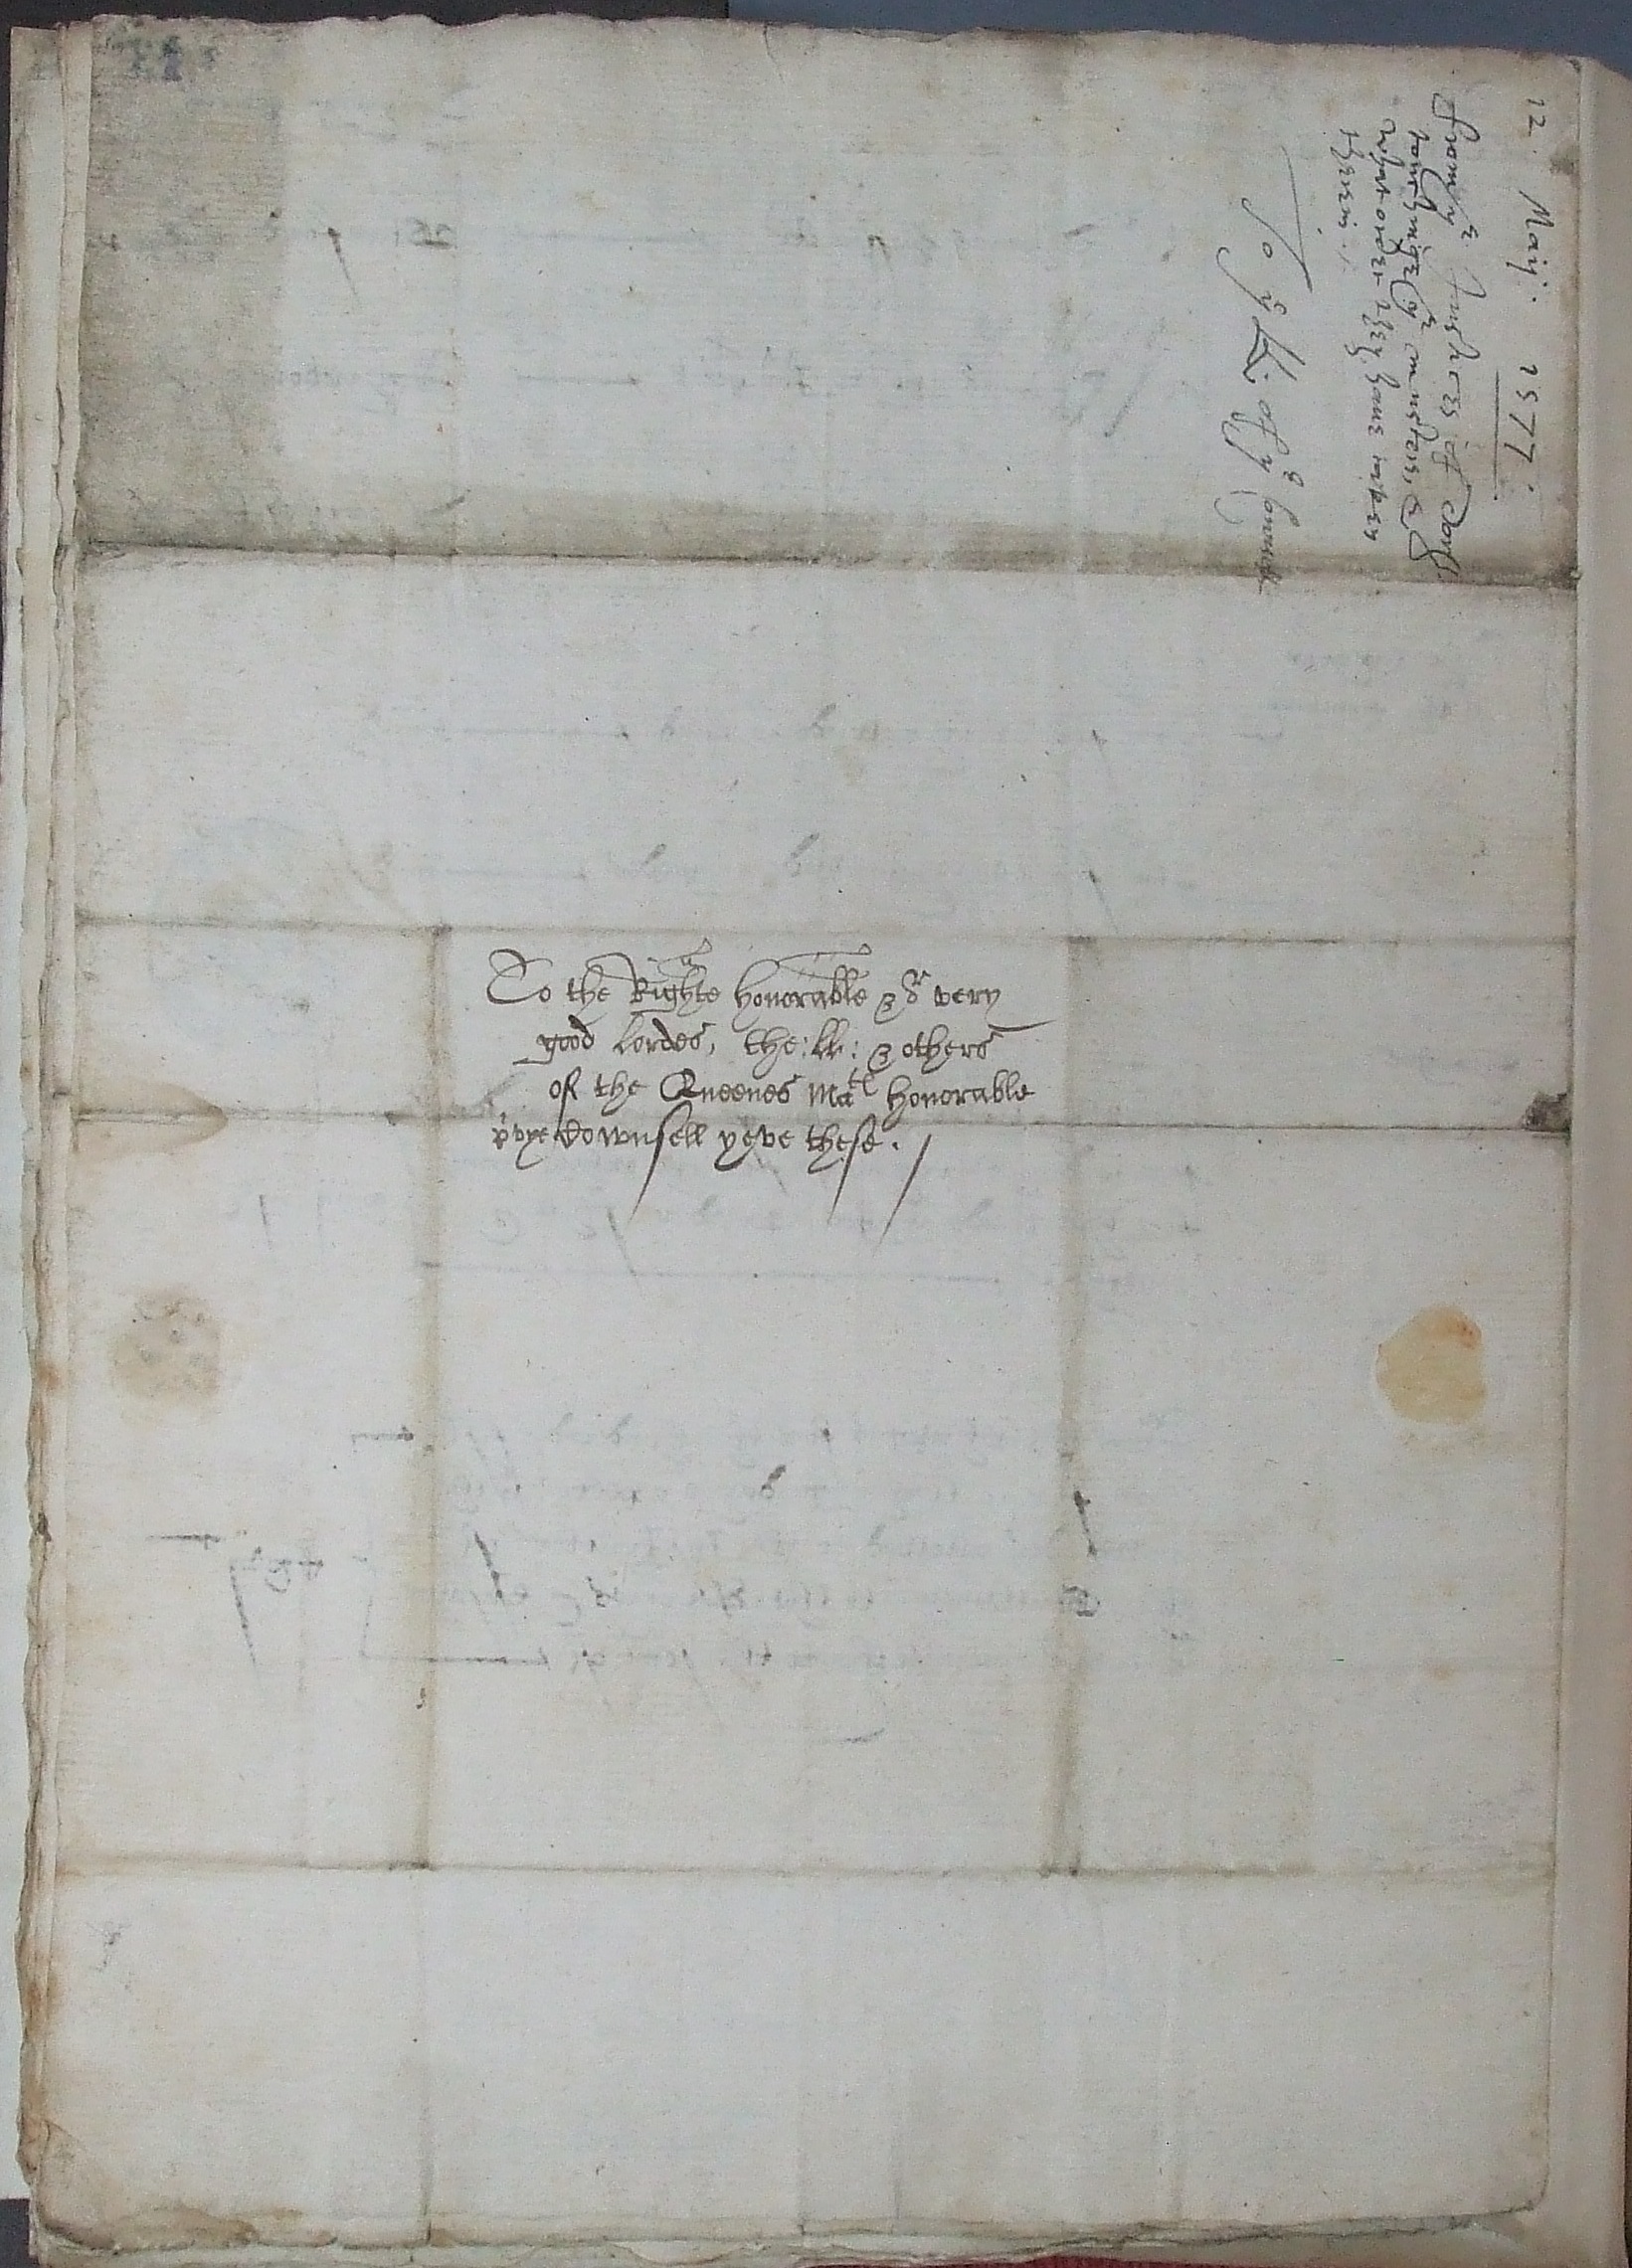 12. Maij. 1577.
From ye Justices of Dors.
touchinge ye musters, &
what order they haue taken
therin./.
To ye LL. of ye Counsell
To the Righte honorable & or very
good Lordes, the :LL: & others
of the Queenes Matꝭ honorable
pryvye Cownsell yeve these./